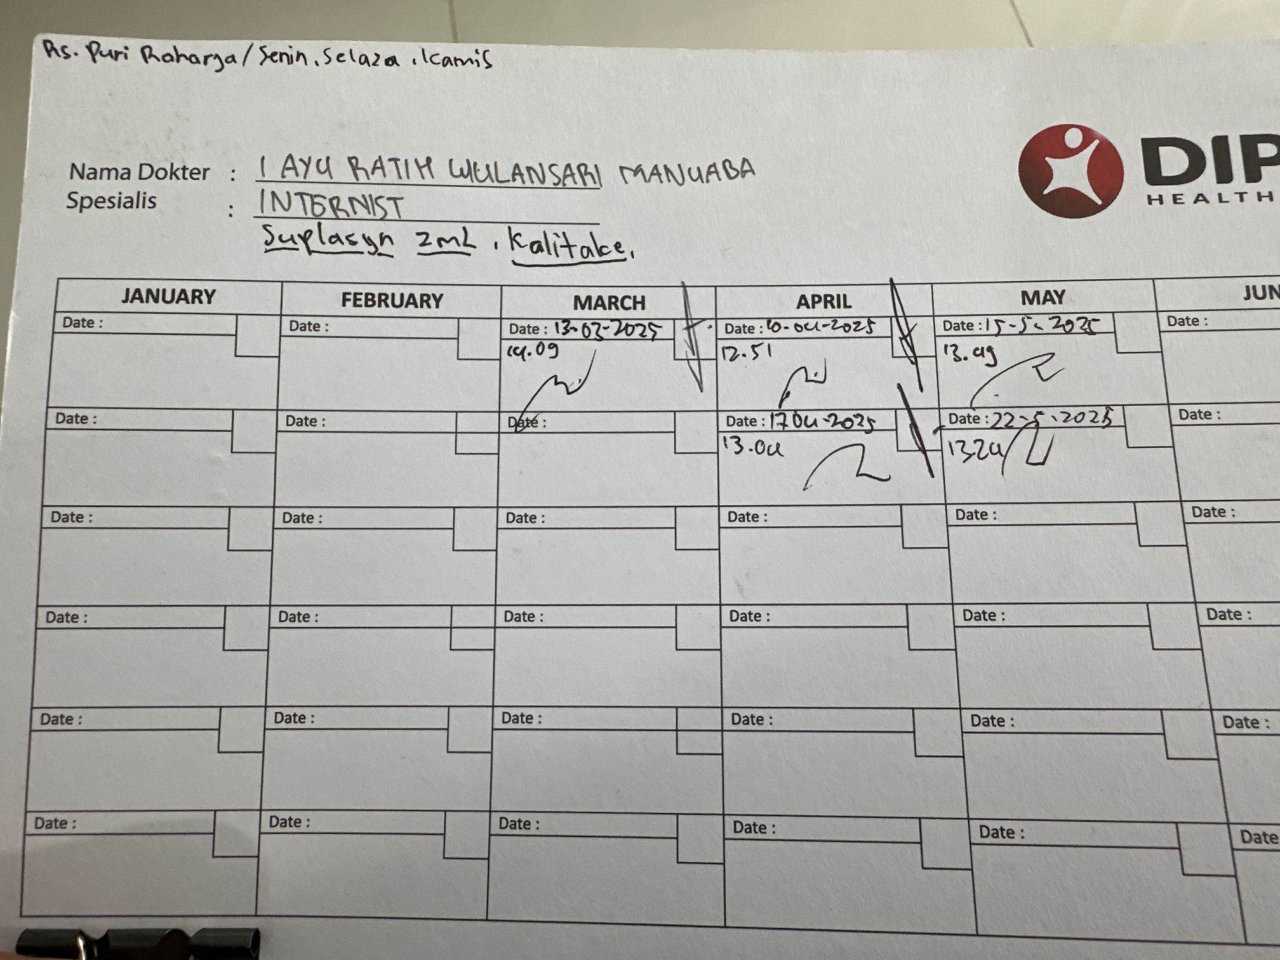 Rs. Puri Raharga/Senin, Selaza, Kamis
DIP
HEALTH
Nama Dokter : I AYU RATIH WULANSARI MANUABA
Spesialis : INTERNIST
Suplasyn 2mL, Kalitake,
JANUARY FEBRUARY MARCH APRIL MAY JUN
Date : Date : Date : 13-03-2025 Date : 10-04-2025 Date : 15-5-2025 Date :
14.09 12.51 13.49
Date : Date : Date : Date : 17 04-2025 Date : 22-5-2025 Date :
13.04 13.24
Date : Date : Date : Date : Date : Date :
Date : Date : Date : Date : Date : Date :
Date : Date : Date : Date : Date : Date :
Date : Date : Date : Date : Date : Date